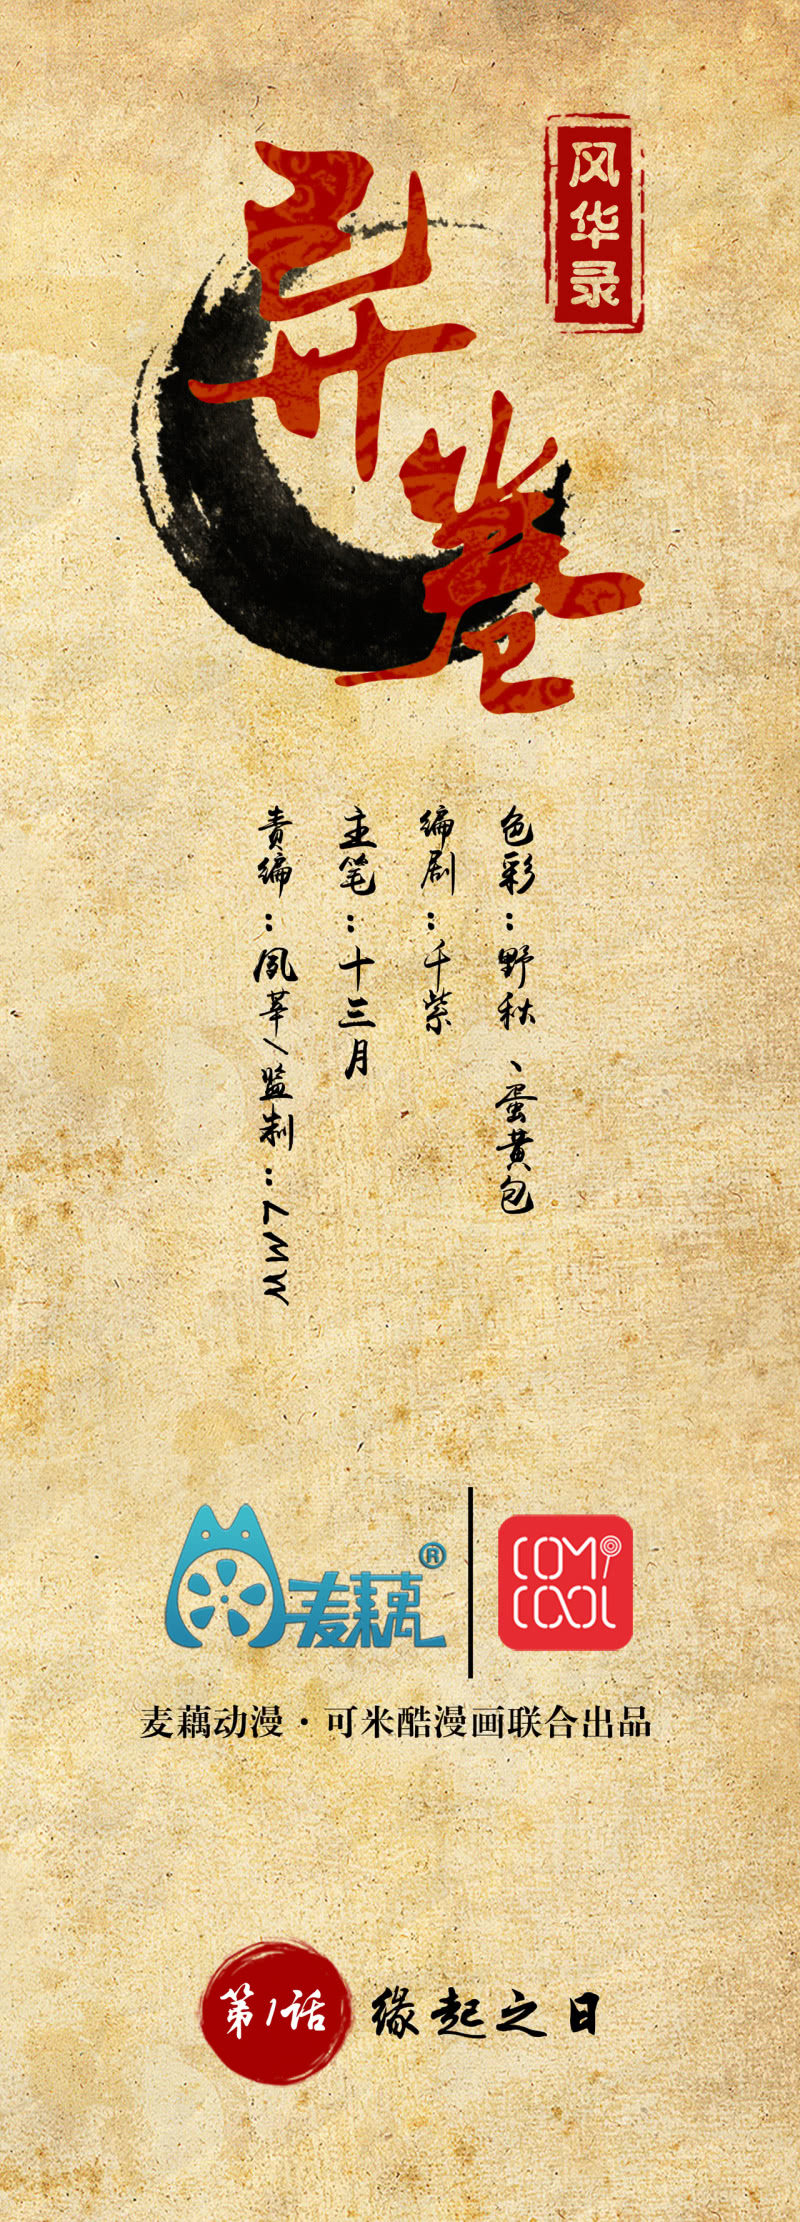 异卷
风华录
色彩：野秋、蛋黄包
编剧：千紫
主笔：十三月
责编：凤莘/监制：LMW
麦藕®
COMI COOL
麦藕动漫·可米酷漫画联合出品
第1话 缘起之日